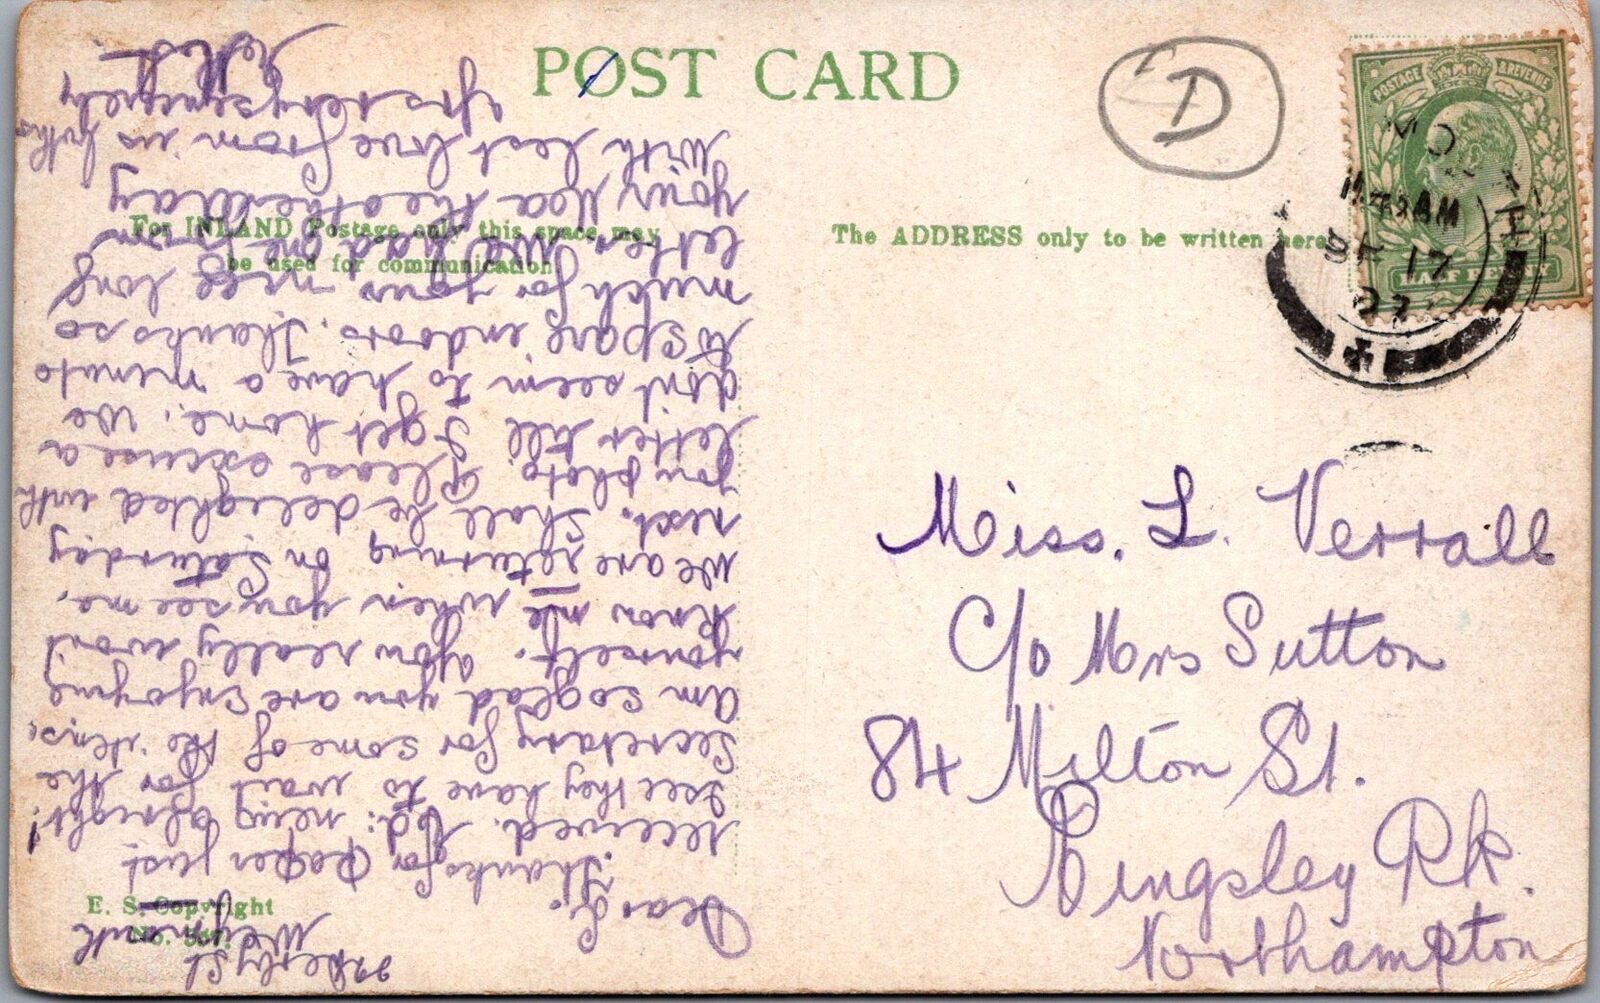 POST CARD
D
POSTAGE & REVENUE
HALF PENNY
MO
11 AM
17
07
For INLAND Postage only this space may
be used for communication
The ADDRESS only to be written here
Miss. L. Verrall
C/o Mrs Sutton
84 Milton St.
Kingsley Pk.
Northampton
E. S. Copyright
No.
Derby St
Weymouth
Dear
Thanks for Paper just
received. Ed: being alright!
I see they have to wait for the
Secretary for some of the items.
Am so glad you are enjoying
yourself. You really won't
know me when you see me.
We are returning on Saturday
next. Shall be delighted with
you photo. Please excuse a
letter till I get home. We
don't seem to have a minute
to spare indoors. Thanks so
much for your nice long
letter. We had one from
your Ma the other day
With best love from us both
Yrs very sincerely